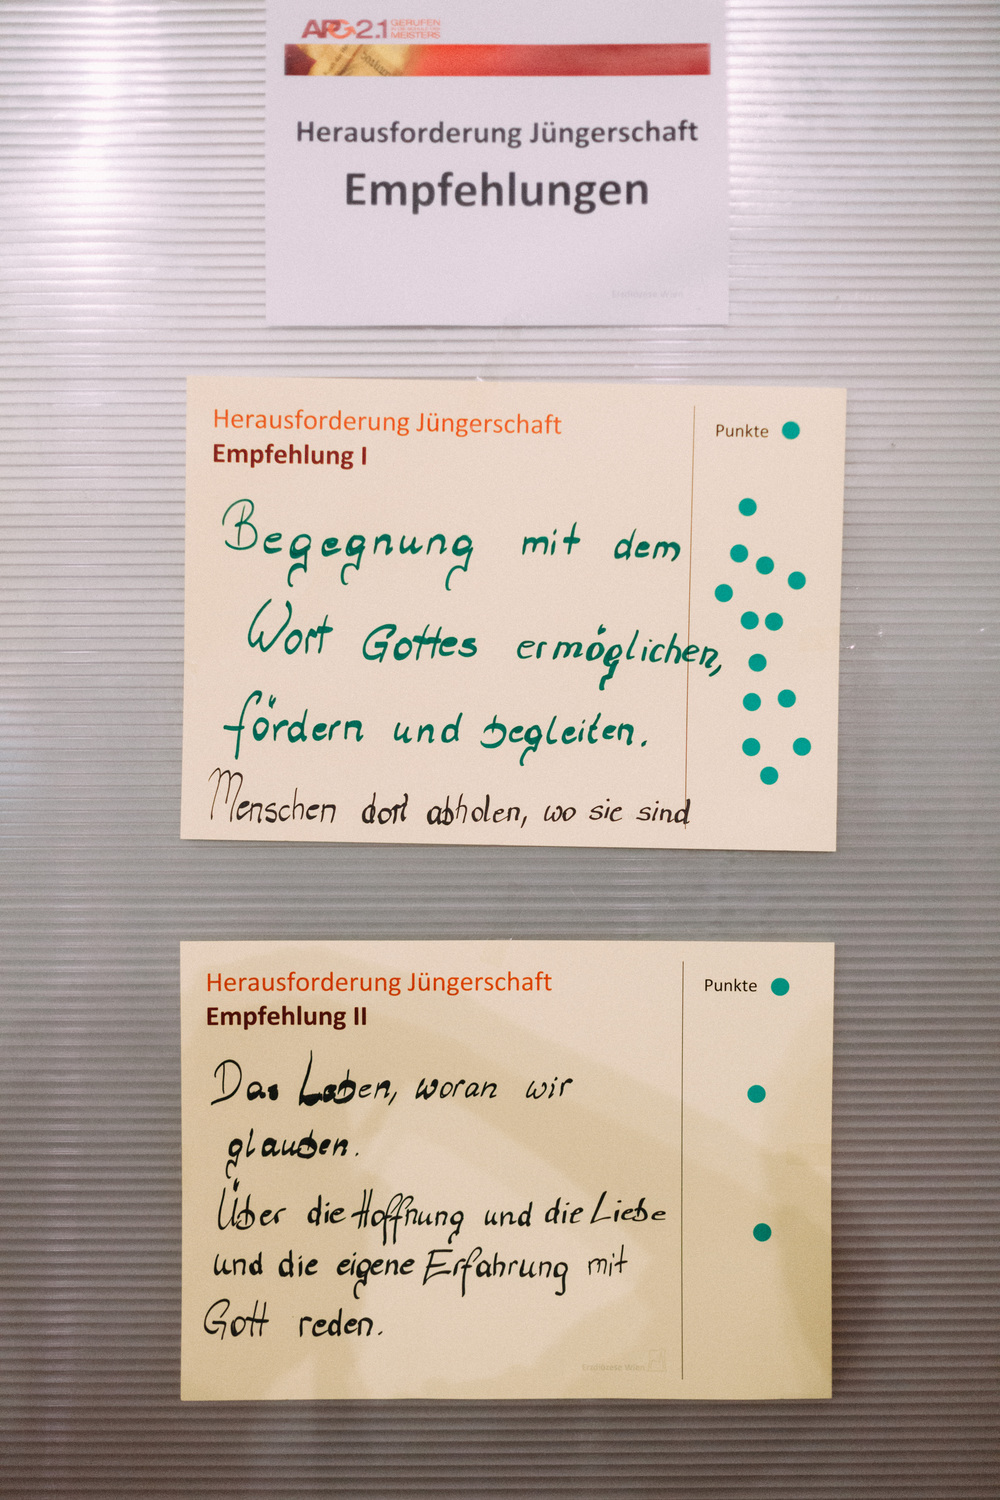 APG2.1 GERUFEN
MEISTERS
Herausforderung Jüngerschaft
Empfehlungen
Erzdiözese Wien
Herausforderung Jüngerschaft
Empfehlung I
Punkte
Begegnung mit dem
Wort Gottes ermöglichen,
fördern und begleiten.
Menschen dort abholen, wo sie sind
Herausforderung Jüngerschaft
Empfehlung II
Punkte
Das Leben, woran wir
glauben.
Über die Hoffnung und die Liebe
und die eigene Erfahrung mit
Gott reden.
Erzdiözese Wien